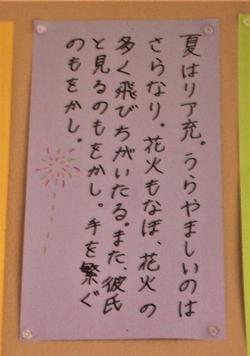 夏はリア充。うらやましいのは
さらなり。花火もなほ、花火の
多く飛びちがいたる。また、彼氏
と見るのもをかし。手を繋ぐ
のもをかし。